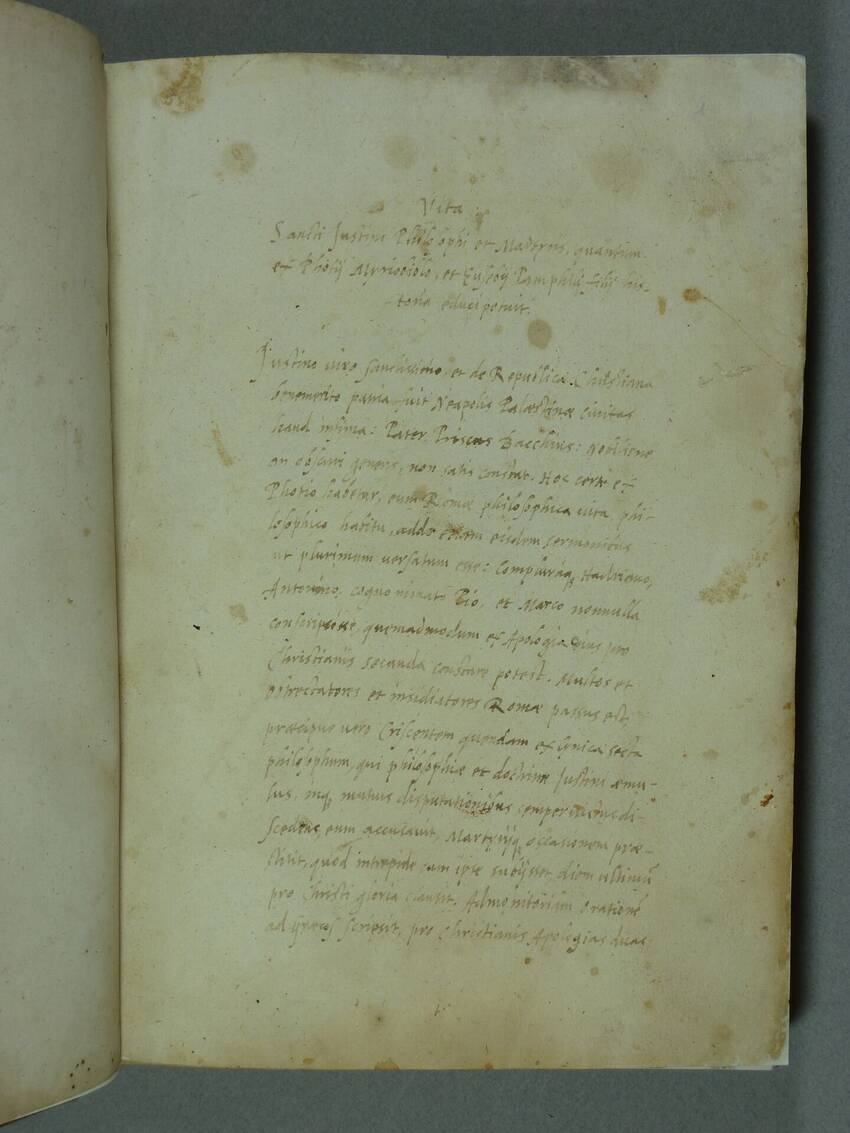 Vita
Sancti Justini Philosophi et Martyris, quantum
ex Photij Myriobiblo, et Eusebij Pamphili his-
toria educi potuit.
Justino viro sanctissimo, et de Republica Christiana
benemerito patria fuit Neapolis Palæstinæ civitas
haud infima: Pater Priscus Bacchius: nobilisne
an obscuri generis, non satis constat. Hoc certe ex
Photio habetur, eum Romæ philosophica vita, phi-
losophico habitu, adde etiam eisdem sermonibus
ut plurimum versatum esse: Hadriano,
Antonino, cognominato Pio, et Marco nonnulla
conscripsisse, quemadmodum ex Apologia eius pro
Christianis secunda constare potest. Multos et
obtrectatores et insidiatores Romæ passus est,
præcipue vero Criscentem quendam ex Cynica secta
philosophum, qui philosophiæ et doctrinæ Justini æmu-
lus, inq; mutuis disputationibus
eum accusavit, Martyrijq; occasionem præ-
buit, quod intrepide cum ipse subijsset diem ultimū
pro Christi gloria clausit. Admonitorium orationē
ad græcos scripsit, pro Christianis Apologias duas